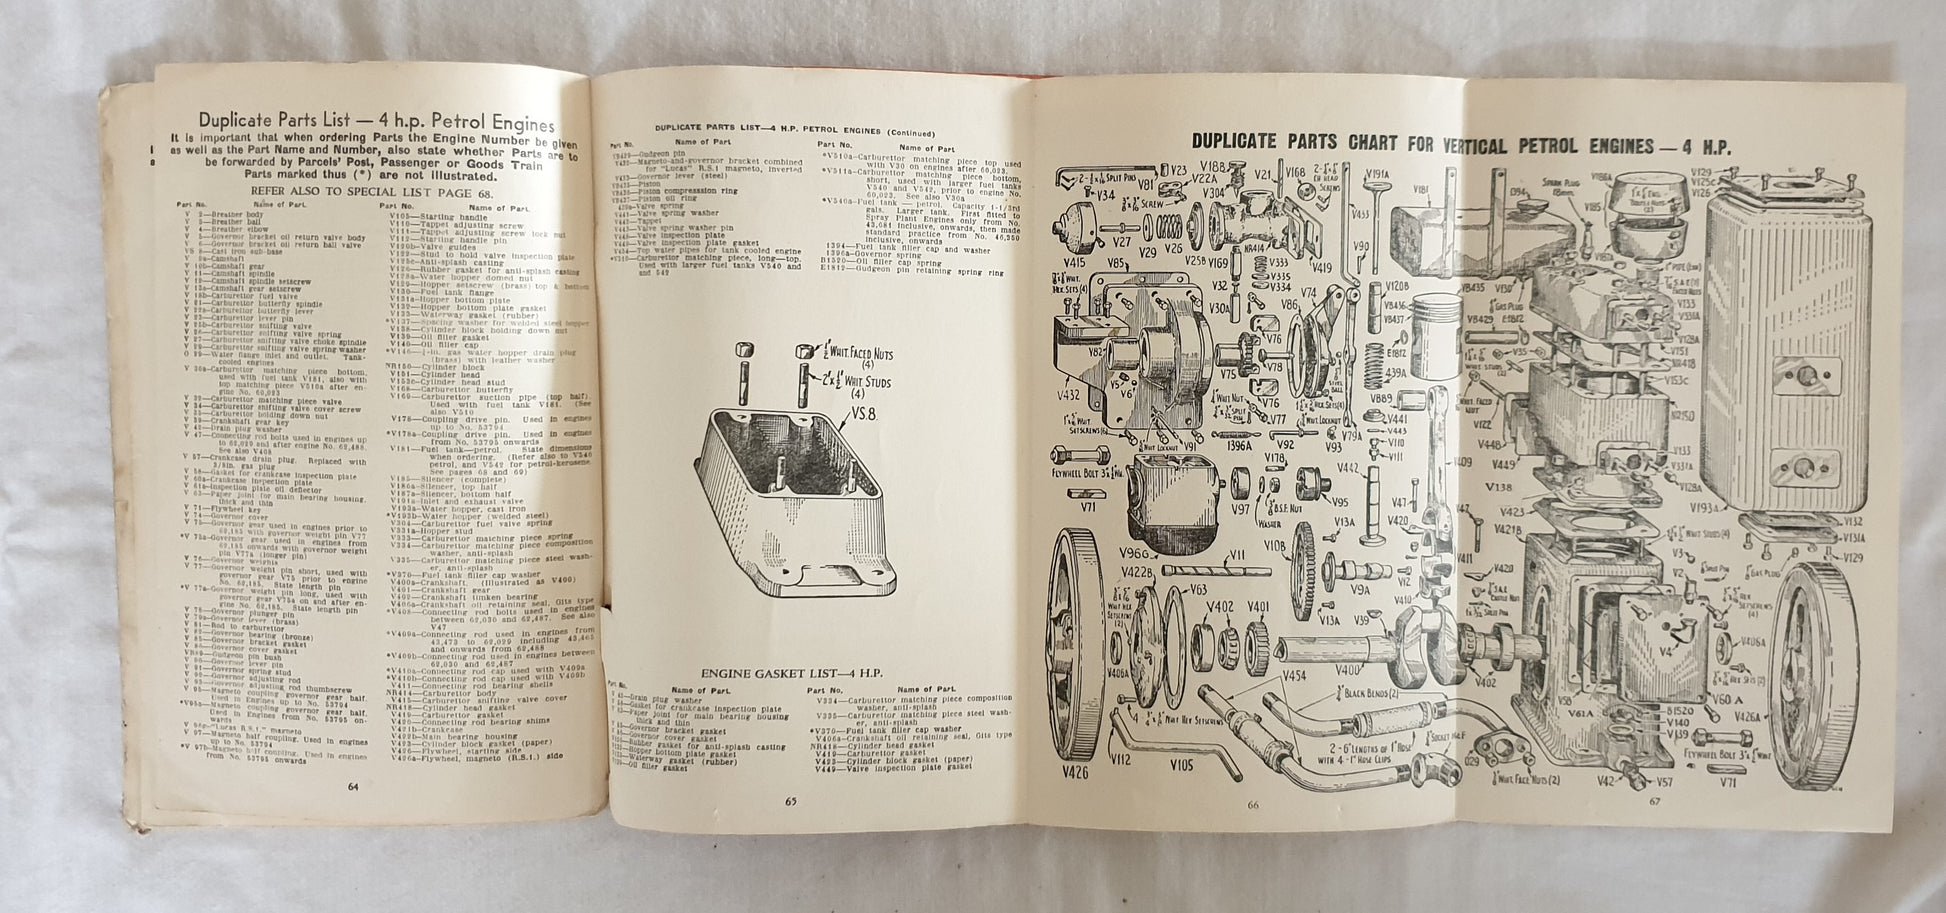 Duplicate Parts List — 4 h.p. Petrol Engines
It is important that when ordering Parts the Engine Number be given
as well as the Part Name and Number, also state whether Parts are to
be forwarded by Parcels' Post, Passenger or Goods Train
Parts marked thus (*) are not illustrated.
REFER ALSO TO SPECIAL LIST PAGE 68.
Part No. Name of Part.
V 2—Breather body
V 3—Breather ball
V 4—Breather elbow
V 5—Governor bracket oil return valve body
V 6—Governor bracket oil return ball valve
V 8—Cast iron sub-base
V 9a—Camshaft
V 10b—Camshaft gear
V 11—Camshaft spindle
V 12—Camshaft spindle setscrew
V 13a—Camshaft gear setscrew
V 18b—Carburettor fuel valve
V 21—Carburettor butterfly spindle
V 22a—Carburettor butterfly lever
V 23—Carburettor lever pin
V 25b—Carburettor snifting valve
V 26—Carburettor snifting valve spring
V 27—Carburettor snifting valve choke spindle
V 29—Carburettor snifting valve spring washer
O 29—Water flange inlet and outlet. Tank-
cooled engines
V 30a—Carburettor matching piece bottom,
used with fuel tank V181, also with
top matching piece V510a after en-
gine No. 60,023
V 32—Carburettor matching piece valve
V 34—Carburettor snifting valve cover screw
V 35—Carburettor holding down nut
V 39—Crankshaft gear key
V 42—Drain plug washer
V 47—Connecting rod bolts used in engines
up to 62,029 and after engine No. 62,488.
See also V408
V 57—Crankcase drain plug. Replaced with
3/8in. gas plug
V 58—Gasket for crankcase inspection plate
V 60a—Crankcase inspection plate
V 61a—Inspection plate oil deflector
V 63—Paper joint for main bearing housing,
thick and thin
V 71—Flywheel key
V 74—Governor cover
V 75—Governor gear used in engines prior to
62,185 with governor weight pin V77
*V 75a—Governor gear used in engines from
62,185 onwards with governor weight
pin V77a (longer pin)
V 76—Governor weights
V 77—Governor weight pin short, used with
governor gear V75 prior to engine
No. 62,185. State length pin
*V 77a—Governor weight pin long, used with
governor gear V75a on and after en-
gine No. 62,185. State length pin
V 78—Governor plunger pin
V 79a—Governor lever (brass)
V 81—Rod to carburettor
V 82—Governor bearing (bronze)
V 85—Governor bracket gasket
V 86—Governor cover gasket
VB89—Gudgeon pin bush
V 90—Governor lever pin
V 91—Governor spring stud
V 92—Governor adjusting rod
V 93—Governor adjusting rod thumbscrew
V 95—Magneto coupling governor gear half.
Used in Engines up to No. 53794
*V95b—Magneto coupling governor gear half.
Used in Engines from No. 53795 on-
wards
V 96g—"Lucas R.S.1." magneto
V 97—Magneto half coupling. Used in engines
up to No. 53794
*V 97b—Magneto half coupling. Used in engines
from No. 53795 onwards
Part No. Name of Part.
V105—Starting handle
V110—Tappet adjusting screw
V111—Tappet adjusting screw lock nut
V112—Starting handle pin
V120b—Valve guides
V122—Stud to hold valve inspection plate
V125c—Anti-splash casting
V126—Rubber gasket for anti-splash casting
V128a—Hopper domed nut
V129—Hopper setscrew (brass) top & bottom
V130—Fuel tank flange
V131a—Hopper bottom plate
V132—Hopper bottom plate gasket
V133—Waterway gasket (rubber)
*V137—Spacing washer for welded steel hopper
V138—Cylinder block holding down nut
V139—Oil filler gasket
V140—Oil filler cap
*V146—1-in. gas water hopper drain plug
(brass) with leather washer
NR150—Cylinder block
V151—Cylinder head
V153c—Cylinder head stud
V168—Carburettor butterfly
V169—Carburettor suction pipe (top half).
Used with fuel tank V181. (See
also V510
V178—Coupling drive pin. Used in engines
up to No. 53794
*V178a—Coupling drive pin. Used in engines
from No. 53795 onwards
V181—Fuel tank—petrol. State dimensions
when ordering. (Refer also to V540
petrol, and V542 for petrol-kerosene.
See pages 68 and 69)
V185—Silencer (complete)
V186a—Silencer, top half
V187a—Silencer, bottom half
V191a—Inlet and exhaust valve
V193a—Water hopper, cast iron
*V193b—Water hopper (welded steel)
V304—Carburettor fuel valve spring
V331a—Hopper stud
V333—Carburettor matching piece spring
V334—Carburettor matching piece composition
washer, anti-splash
V335—Carburettor matching piece steel wash-
er, anti-splash
*V370—Fuel tank filler cap washer
V400a—Crankshaft. (Illustrated as V400)
V401—Crankshaft gear
V402—Crankshaft timken bearing
V406a—Crankshaft oil retaining seal, Gits type
*V408—Connecting rod bolts used in engines
between 62,030 and 62,487. See also
V47
*V409a—Connecting rod used in engines from
43,473 to 62,029 including 43,465
and onwards from 62,488
*V409b—Connecting rod used in engines between
62,030 and 62,487
*V410a—Connecting rod cap used with V409a
*V410b—Connecting rod cap used with V409b
V411—Connecting rod bearing shells
NR414—Carburettor body
V415—Carburettor snifting valve cover
NR418—Cylinder head gasket
V419—Carburettor gasket
V420—Connecting rod bearing shims
V421b—Crankcase
V422b—Main bearing housing
V423—Cylinder block gasket (paper)
V426—Flywheel, starting side
V426a—Flywheel, magneto (R.S.1.) side
64
DUPLICATE PARTS LIST—4 H.P. PETROL ENGINES (Continued)
Part No. Name of Part
VB429—Gudgeon pin
V432—Magneto-and-governor bracket combined
for "Lucas" R.S.1 magneto, inverted
V433—Governor lever (steel)
VB435—Piston
VB436—Piston compression ring
VB437—Piston oil ring
439a—Valve spring
V441—Valve spring washer
V442—Tappet
V443—Valve spring washer pin
V448—Valve inspection plate
V449—Valve inspection plate gasket
V454—Top water pipes for tank cooled engine
*V510—Carburettor matching piece, long—top.
Used with larger fuel tanks V540 and
and 542
Part No. Name of Part
*V510a—Carburettor matching piece top used
with V30 on engines after 60,023.
*V511a—Carburettor matching piece bottom,
short, used with larger fuel tanks
V540 and V542, prior to engine No.
60,023. See also V30a
*V540a—Fuel tank — petrol. Capacity 1-1/3rd
gals. Larger tank. First fitted to
Spray Plant Engines only from No.
43,681 inclusive, onwards, then made
standard practice from No. 46,350
inclusive, onwards
1394—Fuel tank filler cap and washer
1396a—Governor spring
B1520—Oil filler cap spring
E1812—Gudgeon pin retaining spring ring
½" WHIT. FACED NUTS
(4)
2"x½" WHIT STUDS
(4)
VS.8.
ENGINE GASKET LIST—4 H.P.
Part No. Name of Part.
V 42—Drain plug washer
V 58—Gasket for crankcase inspection plate
V 63—Paper joint for main bearing housing
thick and thin
V 85—Governor bracket gasket
V 86—Governor cover gasket
V126—Rubber gasket for anti-splash casting
V132—Hopper bottom plate gasket
V133—Waterway gasket (rubber)
V139—Oil filler gasket
Part No. Name of Part.
V334—Carburettor matching piece composition
washer, anti-splash
V335—Carburettor matching piece steel wash-
er, anti-splash
*V370—Fuel tank filler cap washer
V406a—Crankshaft oil retaining seal, Gits type
NR418—Cylinder head gasket
V419—Carburettor gasket
V423—Cylinder block gasket (paper)
V449—Valve inspection plate gasket
65
DUPLICATE PARTS CHART FOR VERTICAL PETROL ENGINES — 4 H.P.
SPLIT PINS
V81
V23
V18B
V22A
V21
V168
V191A
V181
1394
SPARK PLUG
18mm.
V186A
V129
V125C
V126
V34
SCREW
V304
SCREWS
V433
V185
V415
V27
V29
V26
V25B
NR414
V419
V90
V187A
V85
V169
V333
V335
V334
V32
V30A
V86
V74
V120B
VB436
VB437
VB435
V130
GAS PLUG
VB429
E1812
V133
V331A
V82
V5
V6
V75
V76
V78
E1812
439A
V35
V128A
V151
NR418
V153C
V432
WHIT NUT
V76
V77
HEX SETS(4)
WHIT. LOCKNUT
V79A
VB89
V441
V443
V110
V111
V122
V448
NR150
WHIT LOCKNUT
V91
1396A
V92
V93
FLYWHEEL BOLT
V71
V178
V97
WASHER
B.S.F. NUT
V95
V442
V47
V449
V133
V331A
V128A
V138
V193A
V96G
V11
V10B
V13A
V420
V423
V421B
V132
V131A
V129
V422B
V63
V402
V401
V13A
V9A
V12
V410
V39
V411
V420
V3
V2
SPLIT PIN
GAS PLUG
V406A
V400
V402
V4
V406A
V454
BLACK BENDS(2)
2 - 6" LENGTHS OF 1" HOSE
WITH 4 - 1" HOSE CLIPS
V58
V61A
V60A
B1520
V140
V139
V426A
V426
V112
V105
O29
WHIT. FACE NUTS (2)
V42
V57
FLYWHEEL BOLT
V71
66
67